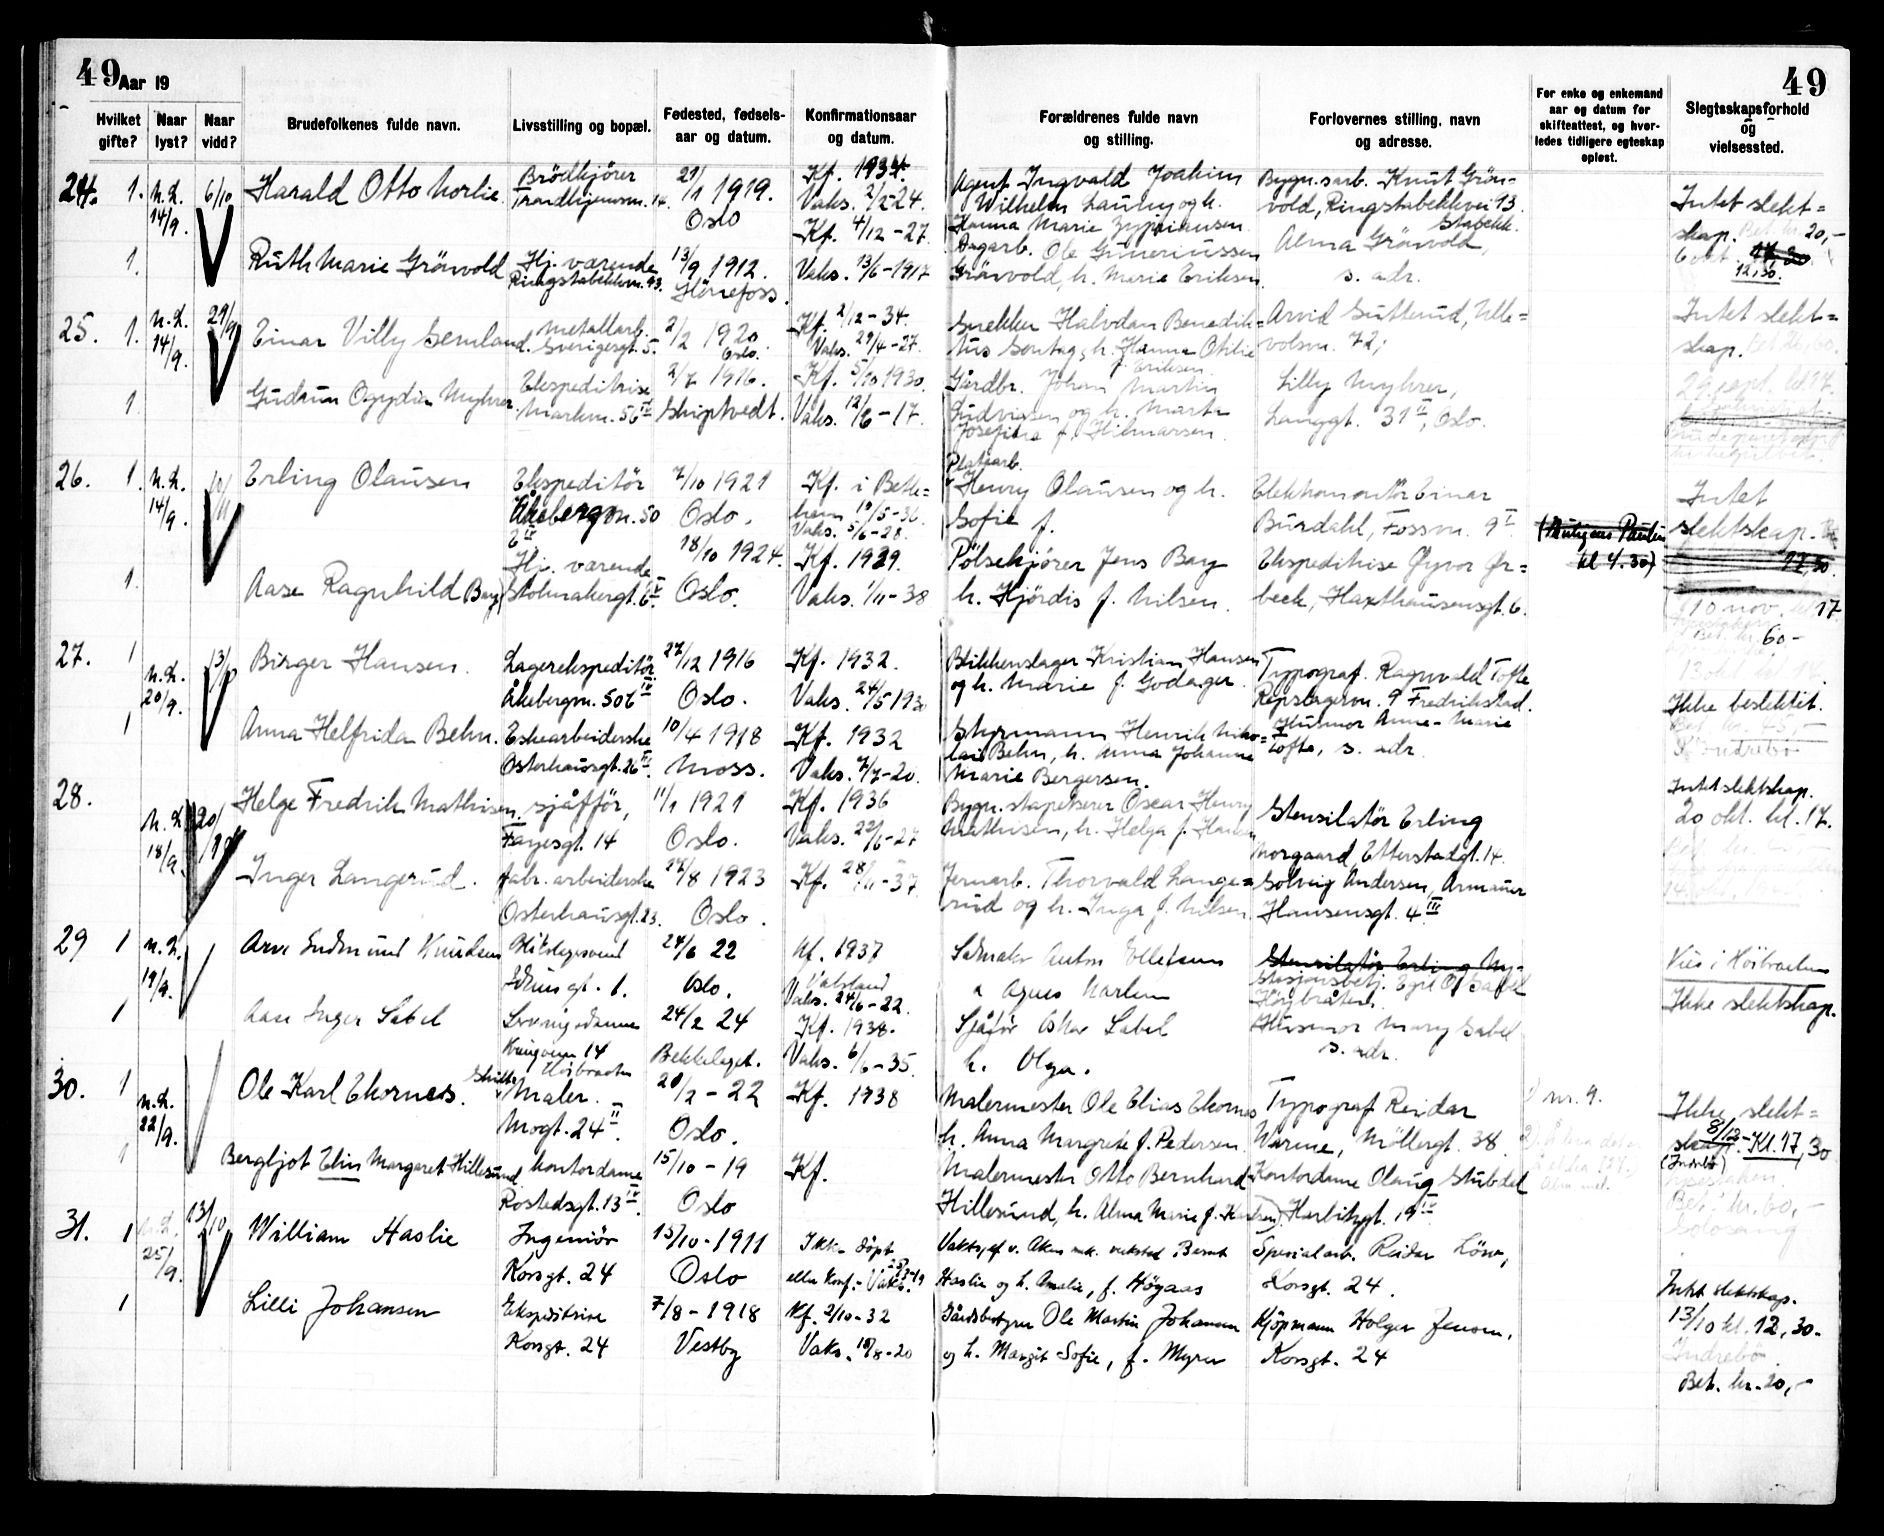 49 Aar 19
49
Hvilket gifte?
Naar lyst?
Naar vidd?
Brudefolkenes fulde navn.
Livsstilling og bopæl.
Fødested, fødsels-
aar og datum.
Konfirmationsaar
og datum.
Forældrenes fulde navn
og stilling.
Forlovernes stilling, navn
og adresse.
For enke og enkemand
aar og datum for
skifteattest, og hvor-
ledes tidligere egteskap
opløst.
Slegtsskapsforhold
og
vielsessted.
24. 1. n.d. 14/9. 6/10 Harald Otto Brödkjörer
Trondhjemsvn. 14.
21/1 1919.
Oslo
Kf. 1934.
Vaks. 2/2-24.
Agent Ingvald Joakim
Wilhelm og h.
Hanna Marie
Bygn.sarb. Knut Grön-
vold, Ringstabekkvei 13.
Stabekk.
Intet slekt=
skap. Bet. kr. 20,-
12,30.
1. Ruth Marie Grönvold Hj. værende
Ringstabekkvn. 13.
13/9 1912.
Hönefoss.
Kf. 4/12-27.
Vaks. 13/6-1917
Dagarb. Ole Guneriussen
Grönvold, h. Marie Eriksen.
Alma Grönvold,
s. adr.
25. 1. n.d. 14/9. 29/9 Einar Villy Metallarb.
Sverigesgt. 5.
2/2 1920
Oslo.
Kf. 2/12-34.
Vaks. 29/4-27.
Snekker Halvdan Benedik=
tus h. Hanna Otilie
f. Eriksen.
Arvid Ulle=
volsvn. 72,
Intet slekt=
skap.
1. Gudrun Myhrer Ekspeditrise
Markvn. 56 IV
2/7 1916.
Skiptvedt.
Kf. 5/10 1930.
Vaks. 12/6-17.
Gårdbr. Johan Martin
Ludvigsen og h. Marta
Josefine f. Hilmarsen.
Lilly Myhrer,
Langgt. 31 II, Oslo.
26. 1. n.d. 14/9. 10/11 Erling Olausen Ekspeditör
Åkebergvn. 50
7/10 1921
Oslo.
Kf. i Betle=
hem 10/5-36.
Vaks. 5/6-28.
Platearb.
Henry Olausen og h.
Sofie f.
Elektromontör Einar
Burdahl, Fossvn. 9 I
kl 4.30)
Intet
slektskap.
17,30.
1. Aase Ragnhild Bay Hj. værende
Stolmakergt. 6 IV
18/10 1924.
Oslo.
Kf. 1939.
Vaks. 1/11-38
Pölsekjörer Jens Bay
h. Hjördis f. Nilsen.
Ekspeditrise Öyvor Ör=
beck, Haxthausensgt. 6.
10 nov. kl 17
Bet. kr. 60-
27. 1 n.d. 20/9. 13/10 Birger Hansen. Lagerekspeditör
Åkebergvn. 50 b IV
27/12 1916
Oslo.
Kf. 1932.
Vaks. 24/5 1930
Blikkenslager Kristian Hansen
og h. Marie f. Godager.
Typograf. Ragnvald Tofte
Repslagervn. 9 Fredrikstad.
Ikke beslektet.
Bet. kr. 45,-
Indrebö
1 Anna Helfrida Behn. Eskearbeiderske
Osterhausgt. 26 IV
10/4 1918
Moss.
Kf. 1932
Vaks. 7/7-20.
Styrmann Henrik Niko=
lai Behn, h. Anna Johanne
Marie Bergersen.
Husmor Anne-Marie
Tofte, s. adr.
28. n.d. 18/9. 20/10 Helge Fredrik Mathisen. sjåfför,
Fayesgt. 14
11/1 1921
Oslo.
Kf. 1936
Vaks. 22/6-27
Bygn.stapetserer Oscar Henry
Mathisen, h. Helga f. Hansen
Stensilatör Erling
Norgaard, Etterstadgt. 14.
Intet slektskap.
20 okt. kl. 17.
Inger Langerud. fabr. arbeiderske
Osterhausgt. 23.
24/8 1923
Oslo.
Kf. 28/11-37.
Jernarb. Thorvald Lange=
rud og h. Inga f. Nilsen.
Solveig Andersen, Armauer
Hansensgt. 4 III
29 1 n.d. 19/9. Arne Knudsen
gt. 1.
24/6 22
Oslo.
Kf. 1937
Vaks. 24/6-22.
Anton Ellefsen
Agnes Karlsen
Stensilatör Erling
Stasjonsbetj. Egil O. Sabel
Höybråten.
Vies i Höibraaten
Ikke slektskap.
1 Aase Inger Sabel Serveringsdame
14
Höibraaten
24/2 24
Bekkelaget.
Kf. 1938.
Vaks. 6/6-35.
Sjåför Oskar Sabel
h. Olga.
Husmor Mary Sabel
s. adr.
30. 1 n.d. 22/9. Ole Karl Ekornes. Maler.
Mogt. 24 II
20/2-22
Oslo.
Kf. 1938
Malermester Ole Elias Ekornes
h. Anna Margrete f. Pedersen
Typograf Reidar
Warme, Möllergt. 38
nr. 9.
Ikke slekt=
skap. 8/12 - Kl. 17,30
(Indrebö)
Bet. kr. 60,-
1 Bergljot Elin Margaret Hillesund kontordame
Rostedsgt. 13 IV
15/10-19
Oslo
Kf.
Malermester Otto Bernhard
Hillesund, h. Alma Marie f. Karlsen.
Kontordame Olaug Stubdal
Harbitzgt. 19 IV
31. 1 n.d. 25/9. 13/10 William Haslie Ingeniör
Korsgt. 24
15/10-1911
Oslo
Ikke döpt
eller konf.- Vaks.
Haslie og h. Amalie, f. Höyaas
Spesialarb. Reidar
Korsgt. 24.
Intet slektskap.
13/10 kl. 12,30.
Indrebö
Bet. kr. 20,-
1 Lilli Johansen Ekspeditrise
Korsgt. 24
7/8-1918
Vestby
Kf. 2/10-32
Vaks. 18/8-20
Gårdsbestyrer Ole Martin Johansen
og h. Margit Sofie, f. Myrer
Kjöpmann Holger Jensen,
Korsgt. 24